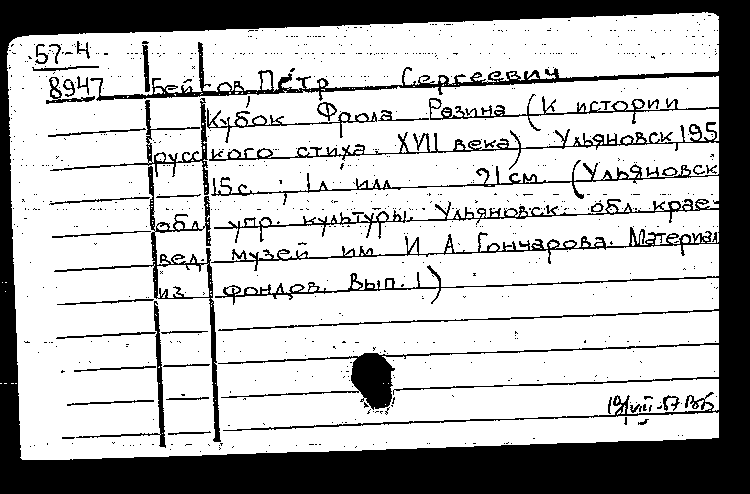 57-4
8947 Бейсов, Пётр Сергеевич
Кубок Фрола Разина (К истории
русского стиха XVII века) Ульяновск, 195
15 с. ; 1 л. илл. 21 см. (Ульяновск.
обл. упр. культуры. Ульяновск. обл. крае-
вед. музей им И. А. Гончарова. Материал
из фондов. Вып. 1)